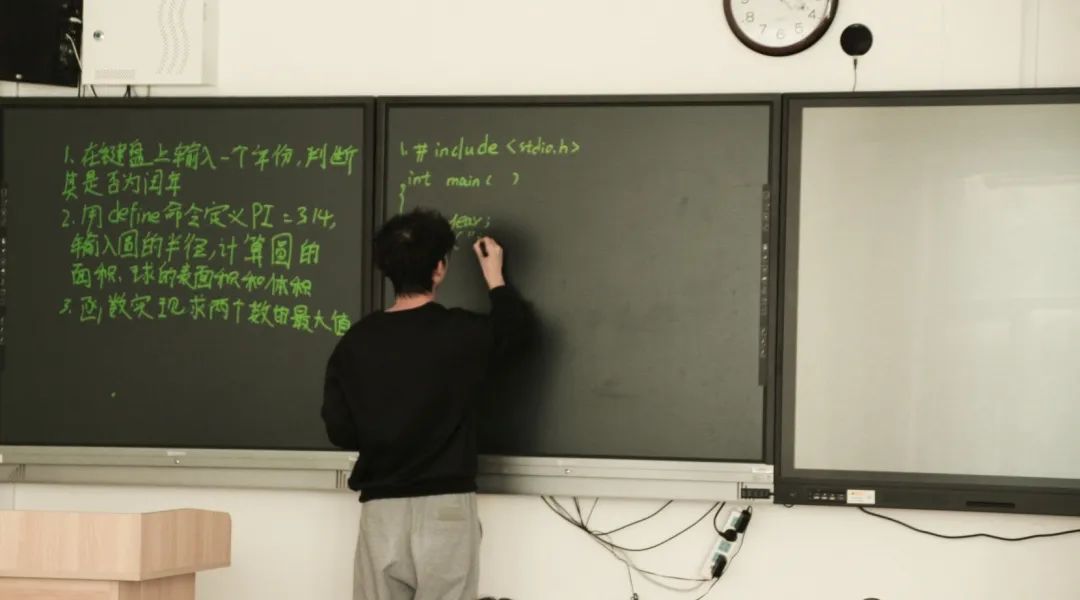 1. 在键盘上输入一个年份,判断
其是否为闰年
2. 用define命令定义PI=3.14,
输入圆的半径,计算圆的
面积、球的表面积和体积
3. 函数实现求两个数中最大值
1. #include <stdio.h>
int main( )
{
year;
8 7 6 5 4